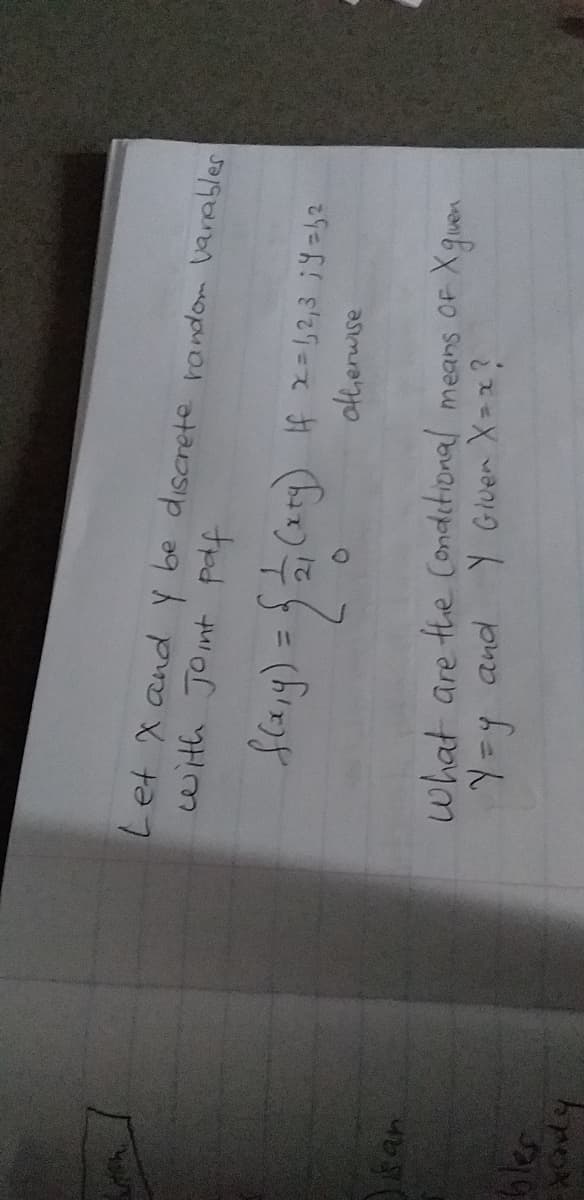 Let X and Y be discrete random variables
with joint pdf
f(x,y) = { 1/21 (x+y) If x=1,2,3 ; y=1,2
0 otherwise
What are the Conditional means of X given
Y=y and Y Given X=x?